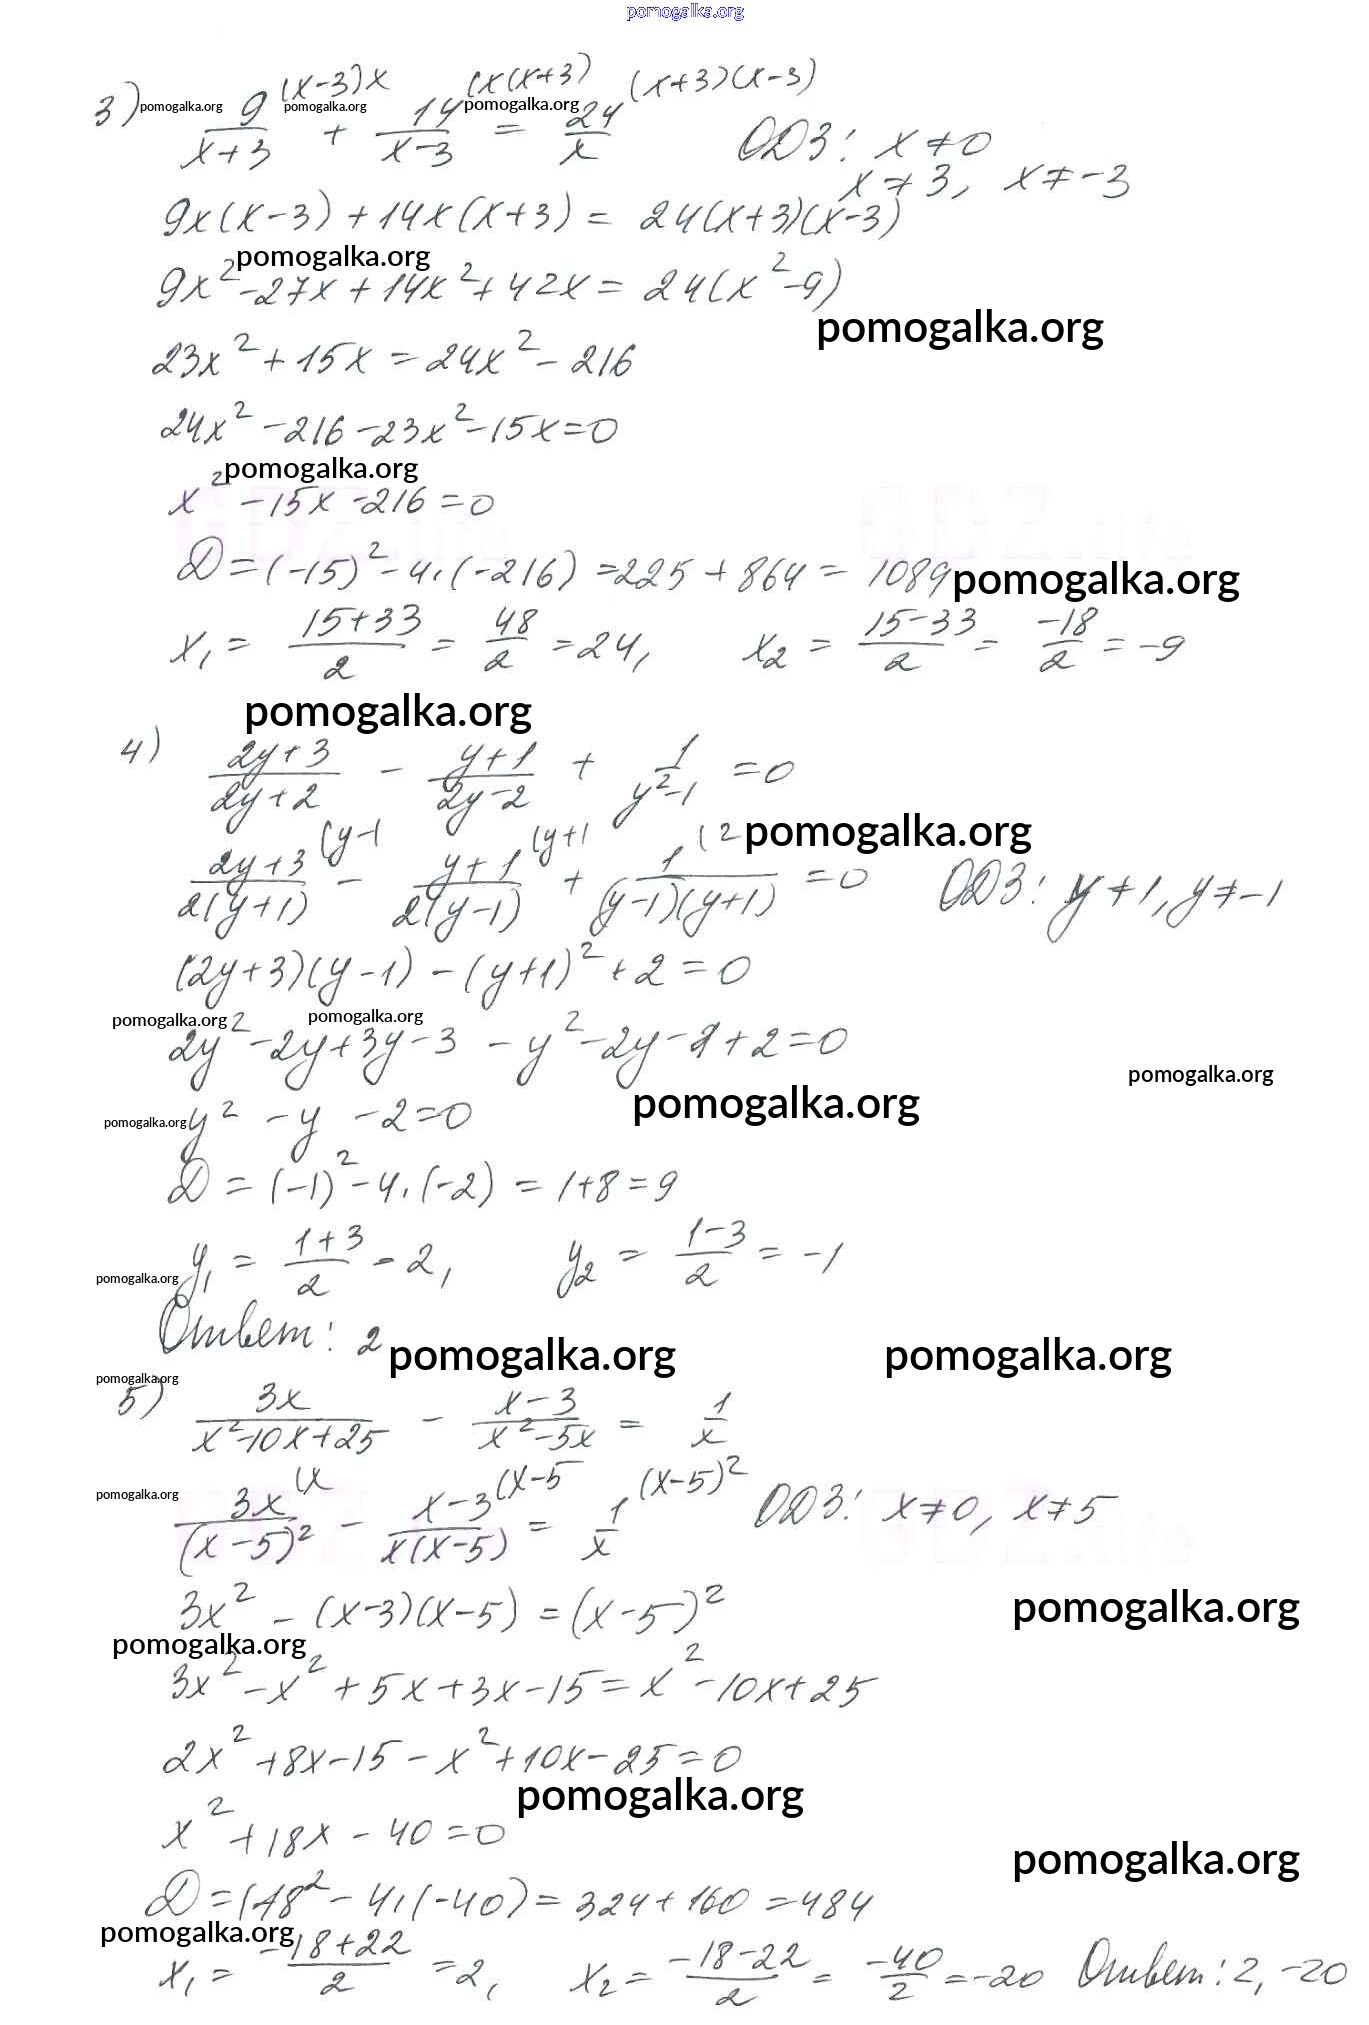 pomogalka.org
3) 9/(x+3) (x-3)x + 14/(x-3) (x(x+3) = 24/x (x+3)(x-3) ОДЗ: x≠0
x≠3, x≠-3
9x(x-3)+14x(x+3) = 24(x+3)(x-3)
pomogalka.org
9x²-27x+14x²+42x = 24(x²-9)
pomogalka.org
23x²+15x = 24x²-216
24x²-216-23x²-15x=0
pomogalka.org
x²-15x-216=0
D=(-15)²-4·(-216)=225+864=1089 pomogalka.org
x₁ = (15+33)/2 = 48/2 =24, x₂ = (15-33)/2 = -18/2 = -9
pomogalka.org
4) (2y+3)/(2y+2) - (y+1)/(2y-2) + 1/(y²-1) =0
pomogalka.org
(2y+3)/(2(y+1)) (y-1 - (y+1)/(2(y-1)) (y+1 + 1/((y-1)(y+1)) (2 =0 ОДЗ: y≠1, y≠-1
(2y+3)(y-1) - (y+1)²+2=0
pomogalka.org pomogalka.org
2y²-2y+3y-3 -y²-2y-1+2=0
pomogalka.org
pomogalka.org
pomogalka.org y² - y -2=0
D = (-1)²-4·(-2) = 1+8=9
y₁ = (1+3)/2 = 2, y₂ = (1-3)/2 = -1
pomogalka.org
Ответ: 2 pomogalka.org pomogalka.org
pomogalka.org
5) 3x/(x²-10x+25) - (x-3)/(x²-5x) = 1/x
pomogalka.org 3x/(x-5)² (x - (x-3)/(x(x-5)) (x-5 = 1/x (x-5)² ОДЗ: x≠0, x≠5
3x² - (x-3)(x-5) = (x-5)² pomogalka.org
pomogalka.org
3x²-x²+5x+3x-15=x²-10x+25
2x²+8x-15-x²+10x-25=0
pomogalka.org
x²+18x-40=0
pomogalka.org
D=(18²-4·(-40)=324+160=484
pomogalka.org
x₁ = (-18+22)/2 =2, x₂ = (-18-22)/2 = -40/2 =-20 Ответ: 2, -20